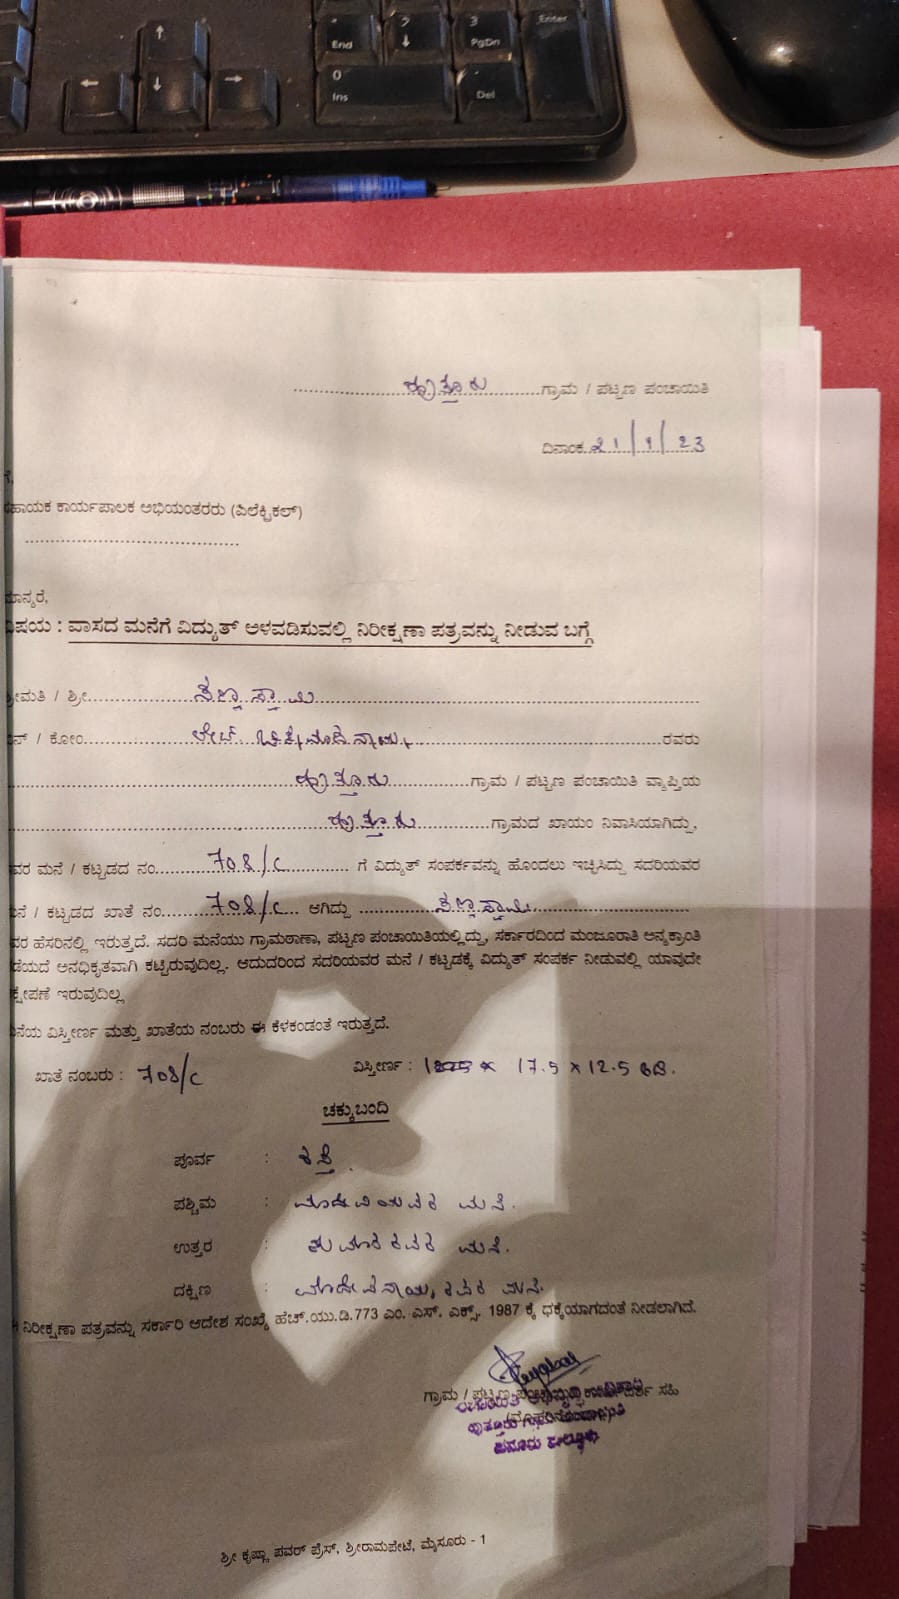 End
↓
3
PgDn
Enter
↑
0
Ins
Del
←
↓
→
ಹುತ್ತೂರು ಗ್ರಾಮ / ಪಟ್ಟಣ ಪಂಚಾಯಿತಿ
ದಿನಾಂಕ 21/9/23
ಗೆ,
ಹಾಯಕ ಕಾರ್ಯಪಾಲಕ ಅಭಿಯಂತರರು (ಎಲೆಕ್ಟ್ರಿಕಲ್)
ಮಾನ್ಯರೆ,
ವಿಷಯ : ವಾಸದ ಮನೆಗೆ ವಿದ್ಯುತ್ ಅಳವಡಿಸುವಲ್ಲಿ ನಿರೀಕ್ಷಣಾ ಪತ್ರವನ್ನು ನೀಡುವ ಬಗ್ಗೆ
ಶ್ರೀಮತಿ / ಶ್ರೀ ಸಣ್ಣಸ್ವಾಮಿ
ನ್ / ಕೋಂ ಲೇಟ್ ಚಿಕ್ಕಮಾದನಾಯ್ಕ ರವರು
ಹುತ್ತೂರು ಗ್ರಾಮ / ಪಟ್ಟಣ ಪಂಚಾಯಿತಿ ವ್ಯಾಪ್ತಿಯ
ಹುತ್ತೂರು ಗ್ರಾಮದ ಖಾಯಂ ನಿವಾಸಿಯಾಗಿದ್ದು,
ವರ ಮನೆ / ಕಟ್ಟಡದ ನಂ. 708/C ಗೆ ವಿದ್ಯುತ್ ಸಂಪರ್ಕವನ್ನು ಹೊಂದಲು ಇಚ್ಚಿಸಿದ್ದು ಸದರಿಯವರ
ನೆ / ಕಟ್ಟಡದ ಖಾತೆ ನಂ. 708/C ಆಗಿದ್ದು ಸಣ್ಣಸ್ವಾಮಿ
ವರ ಹೆಸರಿನಲ್ಲಿ ಇರುತ್ತದೆ. ಸದರಿ ಮನೆಯು ಗ್ರಾಮಠಾಣಾ, ಪಟ್ಟಣ ಪಂಚಾಯಿತಿಯಲ್ಲಿದ್ದು, ಸರ್ಕಾರದಿಂದ ಮಂಜೂರಾತಿ ಅನ್ಯಕ್ರಾಂತಿ
ಡೆಯದೆ ಅನಧಿಕೃತವಾಗಿ ಕಟ್ಟಿರುವುದಿಲ್ಲ. ಆದುದರಿಂದ ಸದರಿಯವರ ಮನೆ / ಕಟ್ಟಡಕ್ಕೆ ವಿದ್ಯುತ್ ಸಂಪರ್ಕ ನೀಡುವಲ್ಲಿ ಯಾವುದೇ
ಕ್ಷೇಪಣೆ ಇರುವುದಿಲ್ಲ
ನೆಯ ವಿಸ್ತೀರ್ಣ ಮತ್ತು ಖಾತೆಯ ನಂಬರು ಈ ಕೆಳಕಂಡಂತೆ ಇರುತ್ತದೆ.
ಖಾತೆ ನಂಬರು : 708/C ವಿಸ್ತೀರ್ಣ : 17.5 x 12.5 ಅಡಿ.
ಚಕ್ಕುಬಂದಿ
ಪೂರ್ವ : ರಸ್ತೆ.
ಪಶ್ಚಿಮ : ಮಾದೇವಿಯವರ ಮನೆ.
ಉತ್ತರ : ಕುಮಾರರವರ ಮನೆ.
ದಕ್ಷಿಣ : ಮಾದೇವನಾಯ್ಕರವರ ಮನೆ.
ನಿರೀಕ್ಷಣಾ ಪತ್ರವನ್ನು ಸರ್ಕಾರಿ ಆದೇಶ ಸಂಖ್ಯೆ ಹೆಚ್.ಯು.ಡಿ.773 ಎಂ. ಎಸ್. ಎಕ್ಸ್. 1987 ಕ್ಕೆ ಧಕ್ಕೆಯಾಗದಂತೆ ನೀಡಲಾಗಿದೆ.
ಗ್ರಾಮ / ಪಟ್ಟಣ ಸಹಿ
ಶ್ರೀ ಕೃಷ್ಣಾ ಪವರ್ ಪ್ರೆಸ್, ಶ್ರೀರಾಮಪೇಟೆ, ಮೈಸೂರು - 1